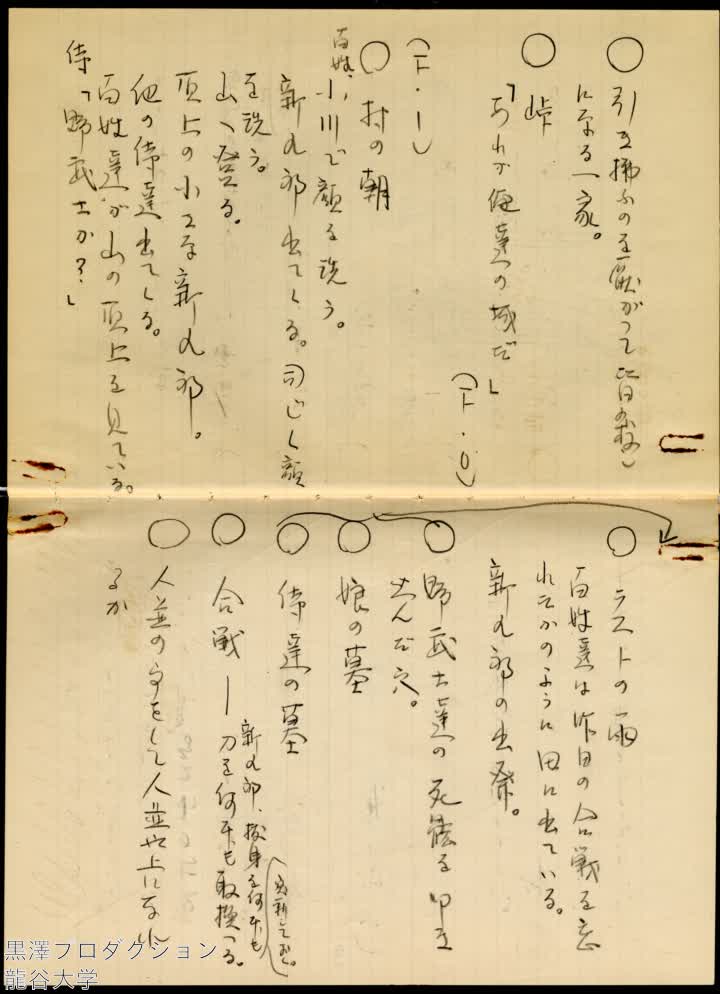 ○ 引き揚ふのを厭がつて皆の
になる一家。
○ 峠
「あれが俺達の城だ」
(F・O)
(F・I)
○ 村の朝
百姓、小川で顔を洗う。
新九郎出てくる。同じく顔
を洗う。
山へ登る。
頂上の小さな新九郎。
他の侍達出てくる。
百姓達が山の頂上を見ている。
侍「野武士か?」
○ ラストの雨
百姓達は昨日の合戦を忘
れたかのように田に出ている。
新九郎の出発。
○ 野武士達の死骸を
だ穴。
○ 娘の墓
○ 侍達の墓
○ 合戦ー刀を何本も取換へる。
新九郎、抜身を何本も
○ 人並の事をして人並以上になれ
るか
黒澤プロダクション
龍谷大学